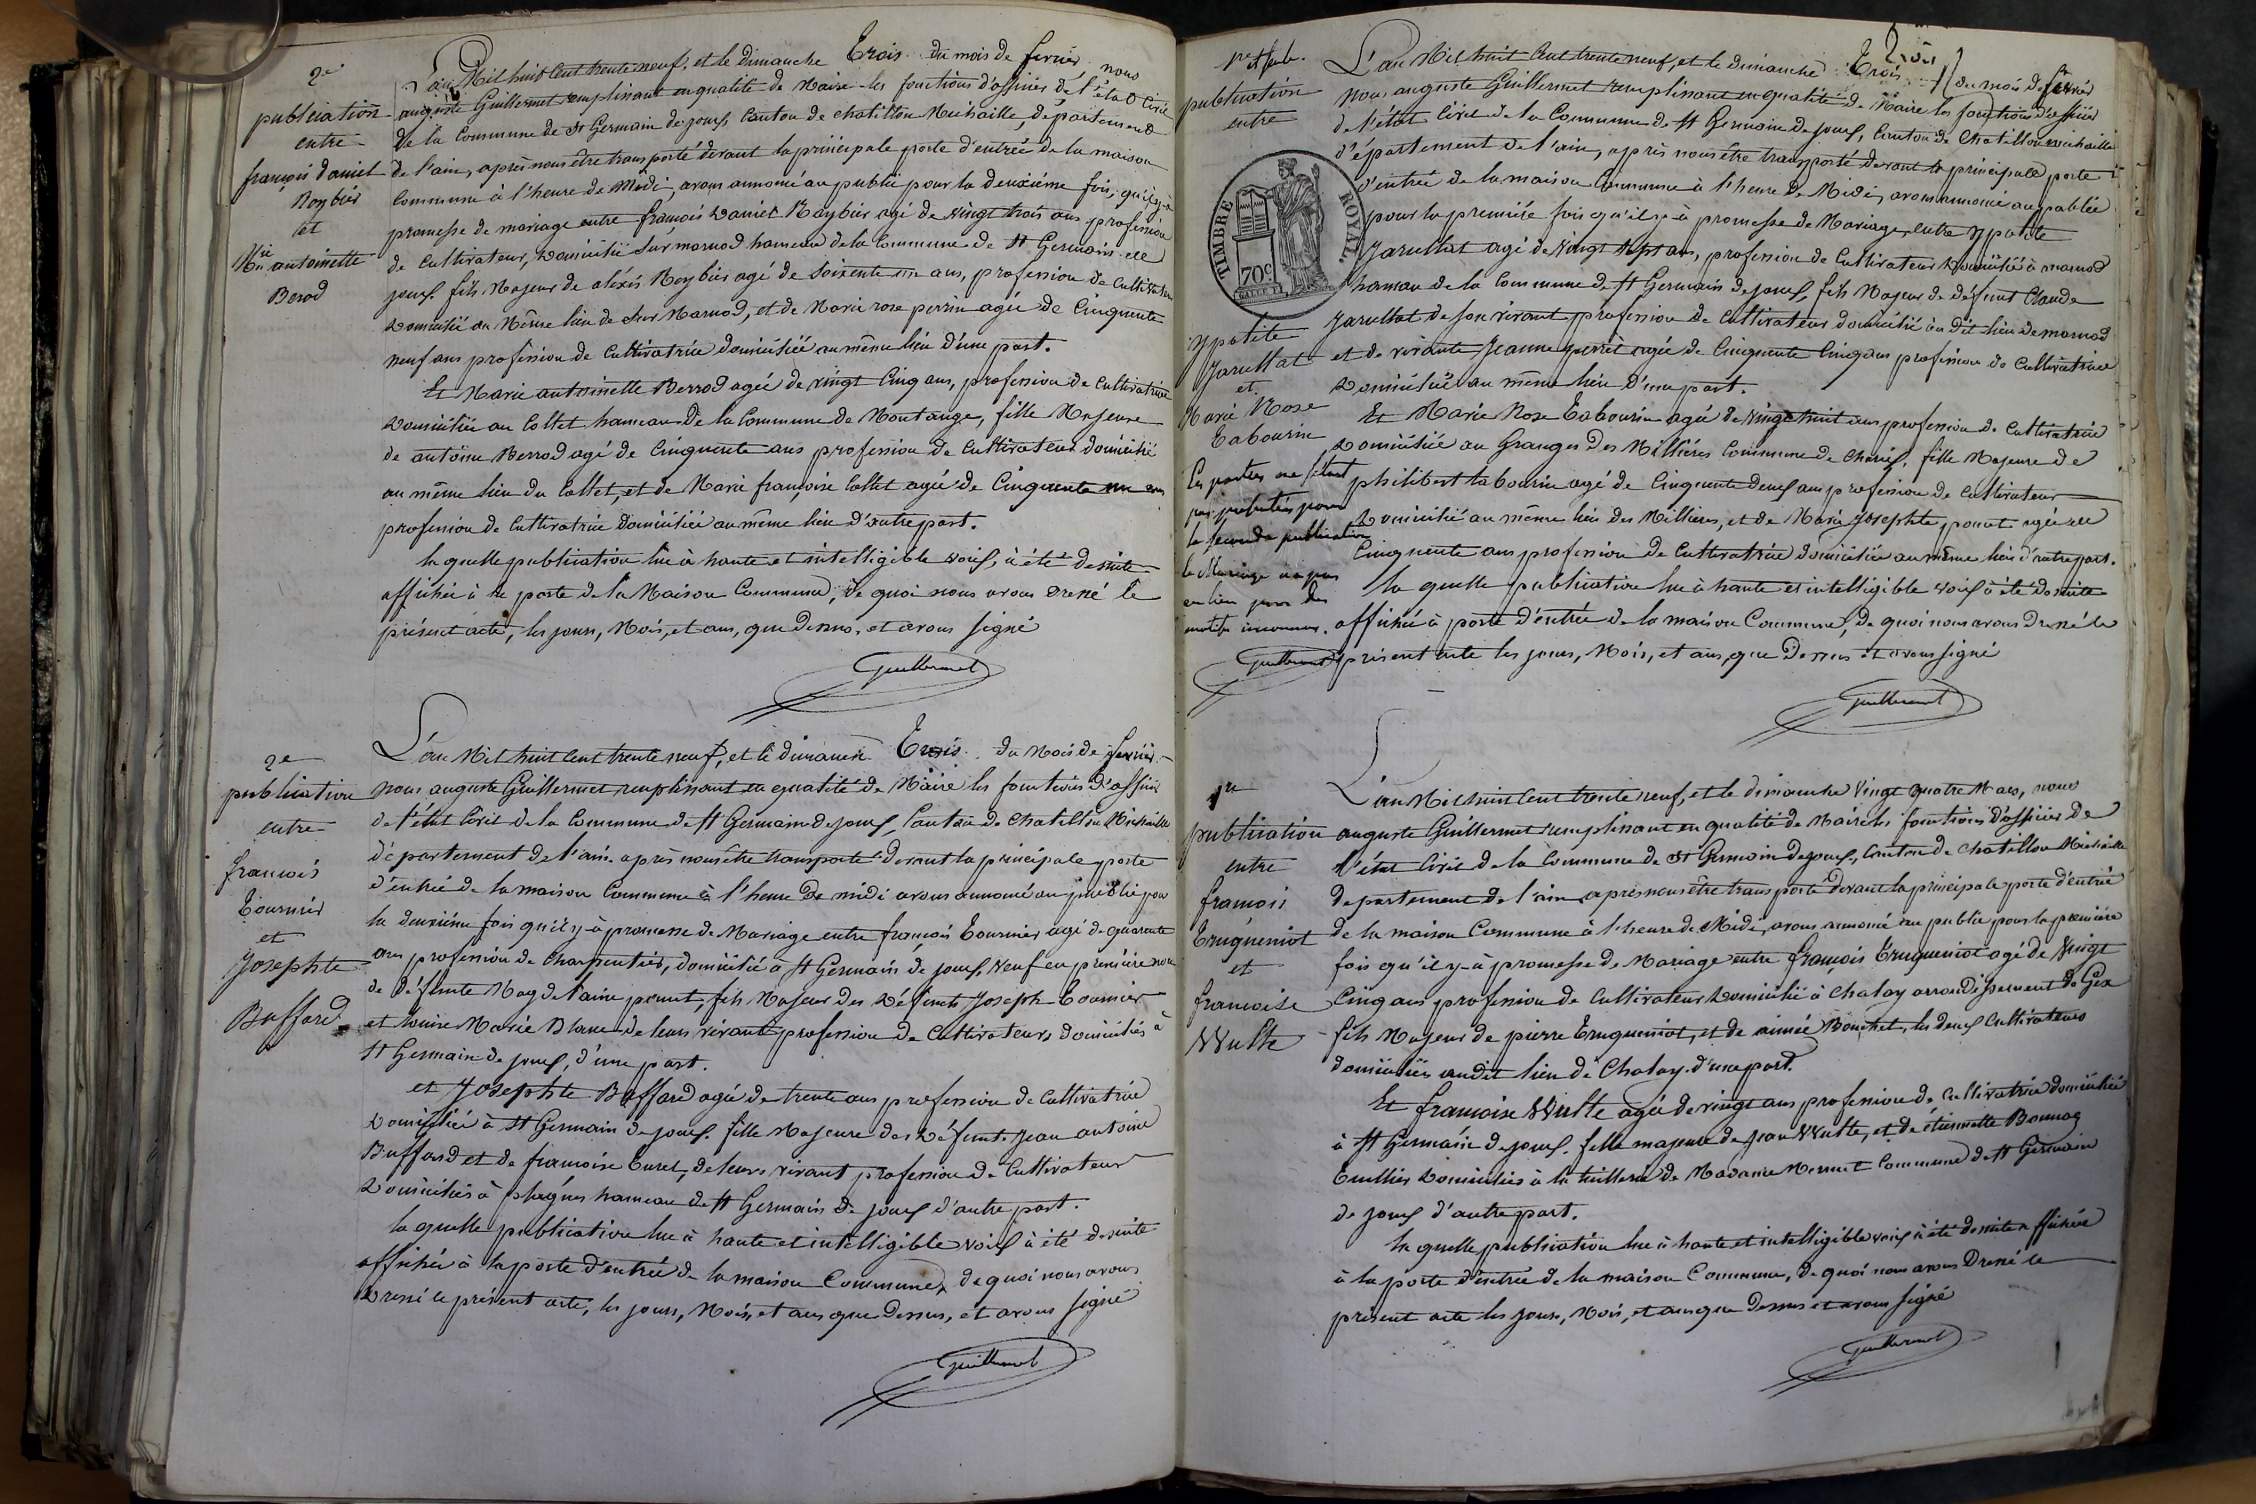 2e
publication
entre
françois daniel
Reybier
et
Mrie antoinette
Berod
L'an Mil huit Cent trente neuf, et le dimanche Trois du mois de fevrier, nous
auguste Guillermet remplissant en qualité de Maire les fonctions d'officier de l'état Civil
de la Commune de St Germain de joux, Canton de chatillon Michaille, département
de l'ain, après nous être transporté devant la principale porte d'entrée de la maison
Commune à l'heure de Midi, avons annoncé au public pour la deuxième fois, qu'il y a
promesse de mariage entre françois Daniel Reybier agé de vingt trois ans profession
de Cultivateur, domicilié sur marnod hameau de la Commune de St Germain de
joux, fils Majeur de aléxis Reybier agé de soixente un ans, profession de Cultivateur
Domicilié au Même lieu de Sur Marnod, et de Marie rose perrin agée de Cinquente
neuf ans profession de Cultivatrice domiciliée au même lieu d'une part.
Et Marie antoinette Berrod agée de vingt Cinq ans, profession de Cultivatrice
Domiciliée au Collet hameau de la Commune de Montange, fille Majeure
de antoine Berrod agé de Cinquente ans profession de Cultivateur domicilié
au même lieu du Collet, et de Marie françoise Collet agée de Cinquente un ans
profession de Cultivatrice Domiciliée au même lieu d'autre part.
la quelle publication lue à haute et intelligible voix, à été de suite
affichée à la porte de la Maison Commune, de quoi nous avons Dressé le
présent acte, les jours, Mois, et ans, que dessus, et avons signé
Guillermet
2e
publication
entre
francois
Tournier
et
Josephte
Buffard
L'an Mil huit Cent trente neuf, et le dimanche Trois du Mois de fevrier
nous auguste Guillermet remplissant en qualité de Maire les fonctions d'officier
de l'état Civil de la Commune de St Germain de joux, Canton de chatillon Michaille
département de l'ain. après nous être transporté devant la principale porte
d'entrée de la maison Commune à l'heure de midi avons annoncé au public pour
la deuxième fois qu'il y à promesse de Mariage entre françois Tournier agé de quarante
ans profession de Charpentier, domicilié à St Germain de joux, Veuf en première noce
de défunte Magdelaine perret, fils Majeur des Défunts Joseph Tournier
et louise Marie Blanc de leurs vivant profession de Cultivateurs domiciliés à
St Germain de joux, d'une part.
et Josephte Buffard agée de trente ans profession de Cultivatrice
Domiciliée à St Germain de joux. fille Majeure des Défunt Jean antoine
Buffard et de francoise Curet, de leurs vivant profession de Cultivateur
Domiciliés à plagnes hameau de St Germain de joux d'autre part.
la quelle publication lue à haute et intelligible voix à été de suite
affichée à la porte d'entrée de la maison Commune, de quoi nous avons
Dressé le présent acte, les jours, Mois, et ans que Dessus, et avons signé
Guillermet
publication
entre
ypolite
Jarullat
et
Marie Rose
Tabourin
Les parties ne s'étant
pas présentées pour
la seconde publication
le Mariage n'a pas
eu lieu pour des
motifs inconnus.
Guillermet
TIMBRE ROYAL.
70c
Trois
L'an Mil huit Cent trente neuf, et le dimanche Trois du mois de fevrier
Nous auguste Guillermet remplissant en qualité de Maire les fonctions d'officier
de l'état Civil de la Commune de St Germain de joux, Canton de Chatillon michaille
d'épartement de l'ain, après nous être transporté devant la principale porte
d'entrée de la maison Commune à l'heure de Midi, avons annoncé au public
pour la première fois qu'il y à promesse de Mariage, entre ypolite
Jarullat agé de Vingt sept ans, profession de Cultivateur Domicilié à marnod
hameau de la Commune de St Germain de joux, fils Majeur de défunt Claude
Jarullat de son vivant profession de Cultivateur domicilié au dit lieu de marnod
et de vivante Jeanne perret agée de Cinquente Cinq ans profession de Cultivatrice
Domiciliée au même lieu d'une part.
Et Marie Rose Tabourin agée de vingt huit ans profession de Cultivatrice
Domiciliée au Granges des Millières Commune de Charix, fille Majeure de
philibert tabourin agé de Cinquente deux ans profession de Cultivateur
Domicilié au même lieu des Millieres, et de Marie Josephte poncet agée de
Cinquente ans profession de Cultivatrice domiciliée au même lieu d'autre part.
la quelle publication lue à haute et intelligible voix à été de suite
affichée à porte d'entrée de la maison Commune, de quoi nous avons Dressé le
présent acte les jours, Mois, et ans, que Dessus et avons signé
Guillermet
1re
publication
entre
francois
Trugueniot
et
francoise
Wulte
L'an Mil huit Cent trente neuf, et le dimanche Vingt quatre Mars, nous
auguste Guillermet remplissant en qualité de Maire les fonctions d'officier de
l'état Civil de la Commune de St Germain de joux, Canton de Chatillon Michaille
departement de l'ain après nous être transporté devant la principale porte d'entrée
de la maison Commune à l'heure de Midi, avons annoncé au public pour la première
fois qu'il y à promesse de Mariage entre françois Trugueniot agé de Vingt
Cinq ans profession de Cultivateur Domicilié à Chalay arrondissement de Gex
fils Majeur de pierre Trugueniot, et de aimée Bouchet, les deux Cultivateurs
domiciliés au dit lieu de Chalay d'une part.
Et francoise Wulte agée de vingt ans profession de Cultivatrice domiciliée
à St Germain de joux. fille majeure de Jean Wulte, et de étiennette Bonnaz
Tuilliers Domiciliés à la tuillerie de Madame Mermet Commune de St Germain
de joux d'autre part.
la quelle publication lue à haute et intelligible voix à été de suite affichée
à la porte d'entrée de la maison Commune, de quoi nous avons Dressé le
présent acte les jours, Mois, et ans que Dessus et avons signé
Guillermet